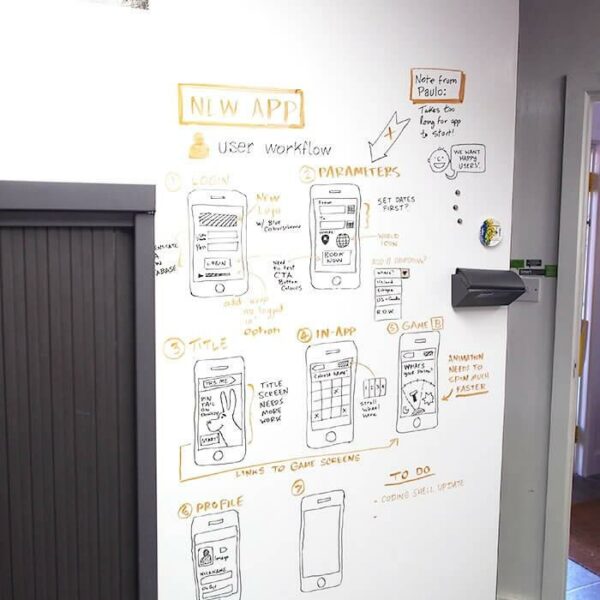 NEW APP
USER WORKFLOW
Note from
Paulo:
Takes too
long for app
to start!
WE WANT
HAPPY
USERS!
1 LOGIN
NEW
LOGO
w/ Blue
LOGIN
add keep
me logged
in
option
2 PARAMETERS
From
To
BOOK
NOW
SET DATES
FIRST?
WORLD
ICON
Need
to test
CTA
Button
Colours
ADD A DROPDOWN?
Where?
Ireland
Europe
US + Canada
R.O.W.
3 TITLE
PIN
TAIL
ON
DONKEY
START
TITLE
SCREEN
NEEDS
MORE
WORK
4 IN-APP
CHOOSE NAME?
X
X
1 2 3 4
Scroll
Wheel
here
5 GAME B
WHAT'S
your
ANIMATION
NEEDS TO
SPIN MUCH
FASTER
LINKS TO GAME SCREENS
TO DO
- CODING SHELL UPDATE
-
6 PROFILE
Image
NICKNAME
7